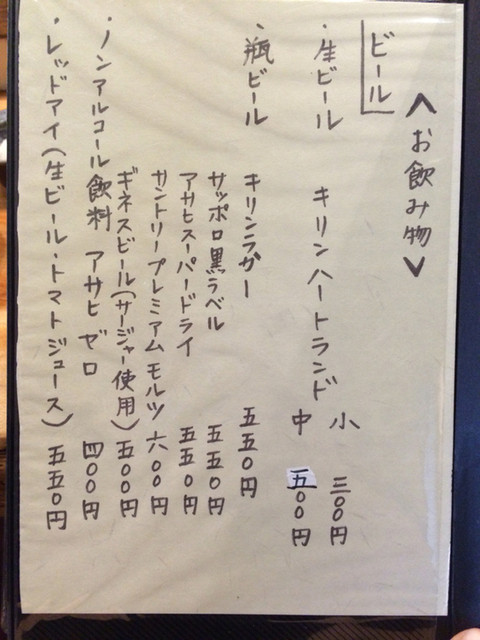 ＜お飲み物＞
ビール
・生ビール キリンハートランド 小 三〇〇円
中 五〇〇円
・瓶ビール キリンラガー 五五〇円
サッポロ黒ラベル 五五〇円
アサヒスーパードライ 五五〇円
サントリープレミアムモルツ 六〇〇円
ギネスビール(サージャー使用) 五〇〇円
・ノンアルコール飲料 アサヒゼロ 四〇〇円
・レッドアイ(生ビール・トマトジュース) 五五〇円